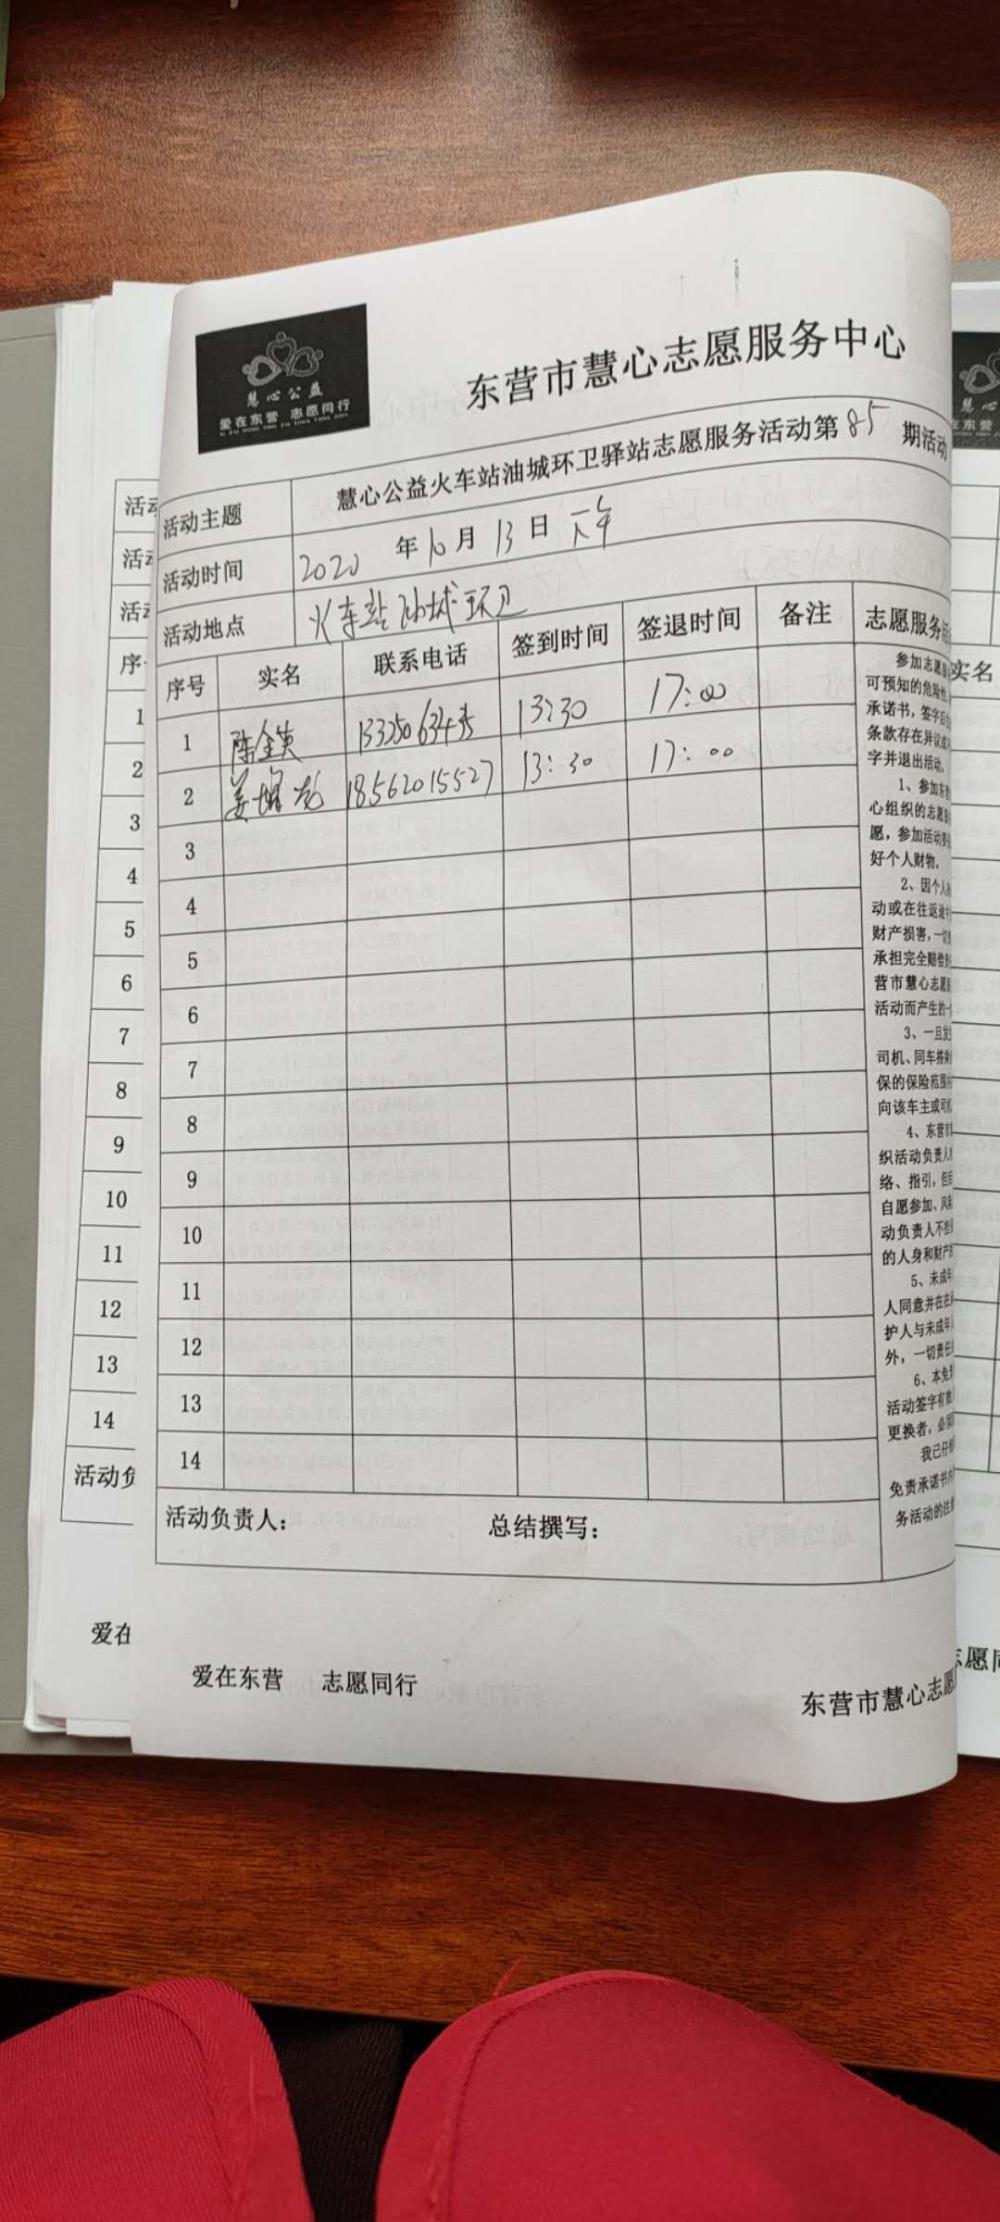 慧心公益
爱在东营 志愿同行
东营市慧心志愿服务中心
活动主题 慧心公益火车站油城环卫驿站志愿服务活动第85期活动
活动时间 2020年10月13日下午
活动地点 火车站油城环卫
序号 实名 联系电话 签到时间 签退时间 备注 志愿服务
1 陈金英 13:30 17:00
2 姜 18562015527 13:30 17:00
3
4
5
6
7
8
9
10
11
12
13
14
活动负责人： 总结撰写：
参加志愿
可预知的危险性
承诺书，签字后
条款存在异议或
字并退出活动。
1、参加东营
心组织的志愿
愿，参加活动
好个人财物。
2、因个人
动或在往返途
财产损害，一切
承担完全赔偿
营市慧心志愿
活动而产生的一
3、一旦发
司机、同车搭乘
保的保险范围
向该车主或司机
4、东营市
织活动负责人
络、指引，但
自愿参加、风险
动负责人不
的人身和财产
5、未成年
人同意并在
护人与未成年
外，一切责任
6、本免
活动签字有
更换者，必须
我已仔细
免责承诺书内
务活动的
爱在东营 志愿同行
东营市慧心志愿
活动
活动
活动
序
1
2
3
4
5
6
7
8
9
10
11
12
13
14
活动负
爱在
实名
志愿同